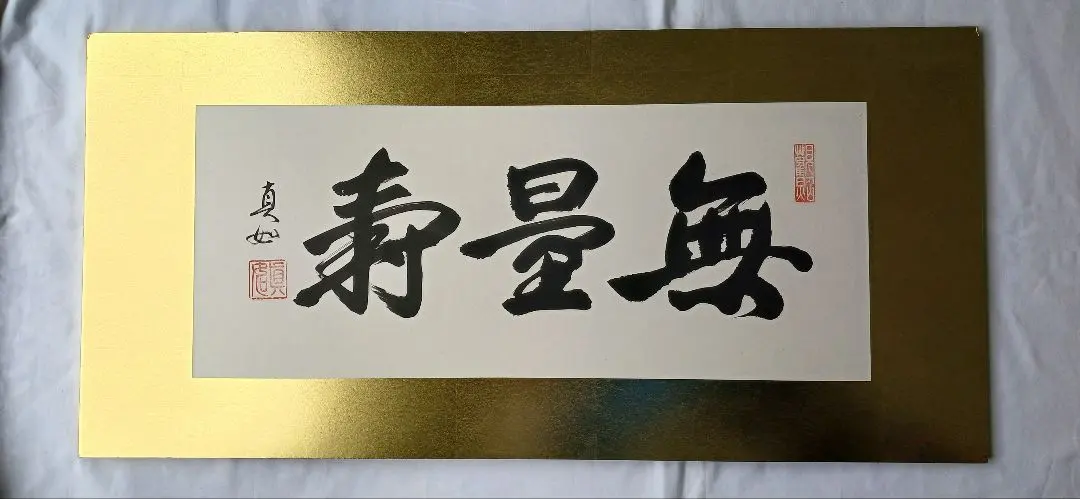 無量壽
真如